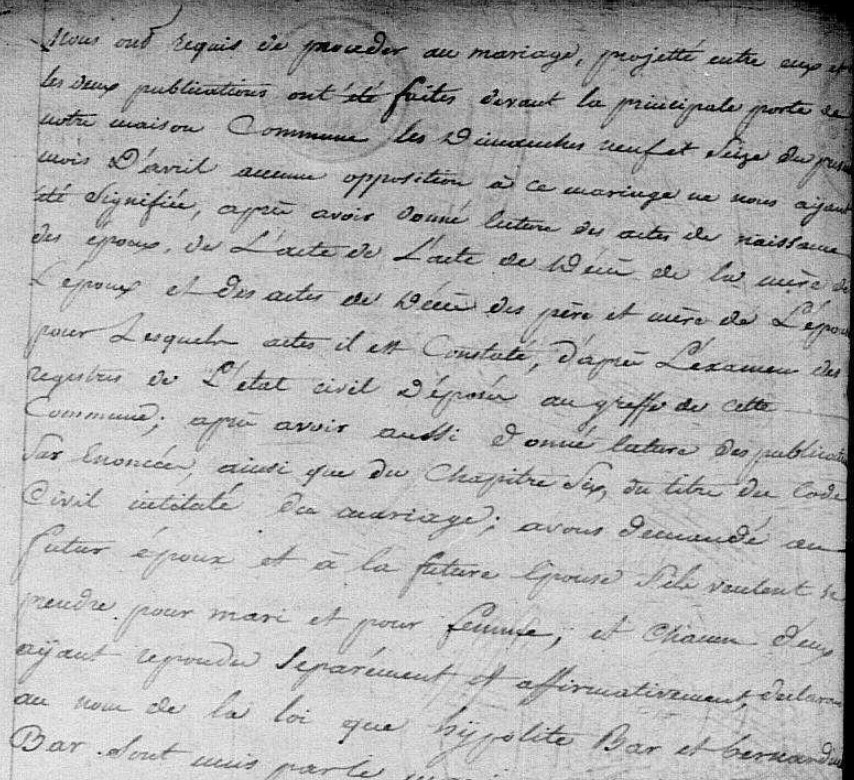 Nous ont requis de proceder au mariage, projetté entre eux et
les deux publications ont été faites devant la principale porte de
notre maison Commune les Dimanches neuf et Seize du
mois D'avril aucune opposition à ce mariage ne nous ayant
été Signifiée, après avoir donné lecture des actes de naissance
des époux, de L'acte de L'acte de Décès de la mère de
L'époux et des actes de Décès des père et mère de L'épou
pour Lesquels actes il est Constaté, d'après L'examen des
registres de L'état civil Déposés au greffe de cette
Commune; après avoir aussi donné lecture des publicat
Sus Enoncées, ainsi que du Chapitre Six, du titre du Code
Civil intitulé du mariage; avons demandé au
futur époux et à la future Epouse S'ils veulent se
prendre pour mari et pour femme; et Chacun d'eux
ayant repondu Separément et affirmativement, declaron
au nom de la loi que hypolite Bar et bernardine
Bar Sont unis par le